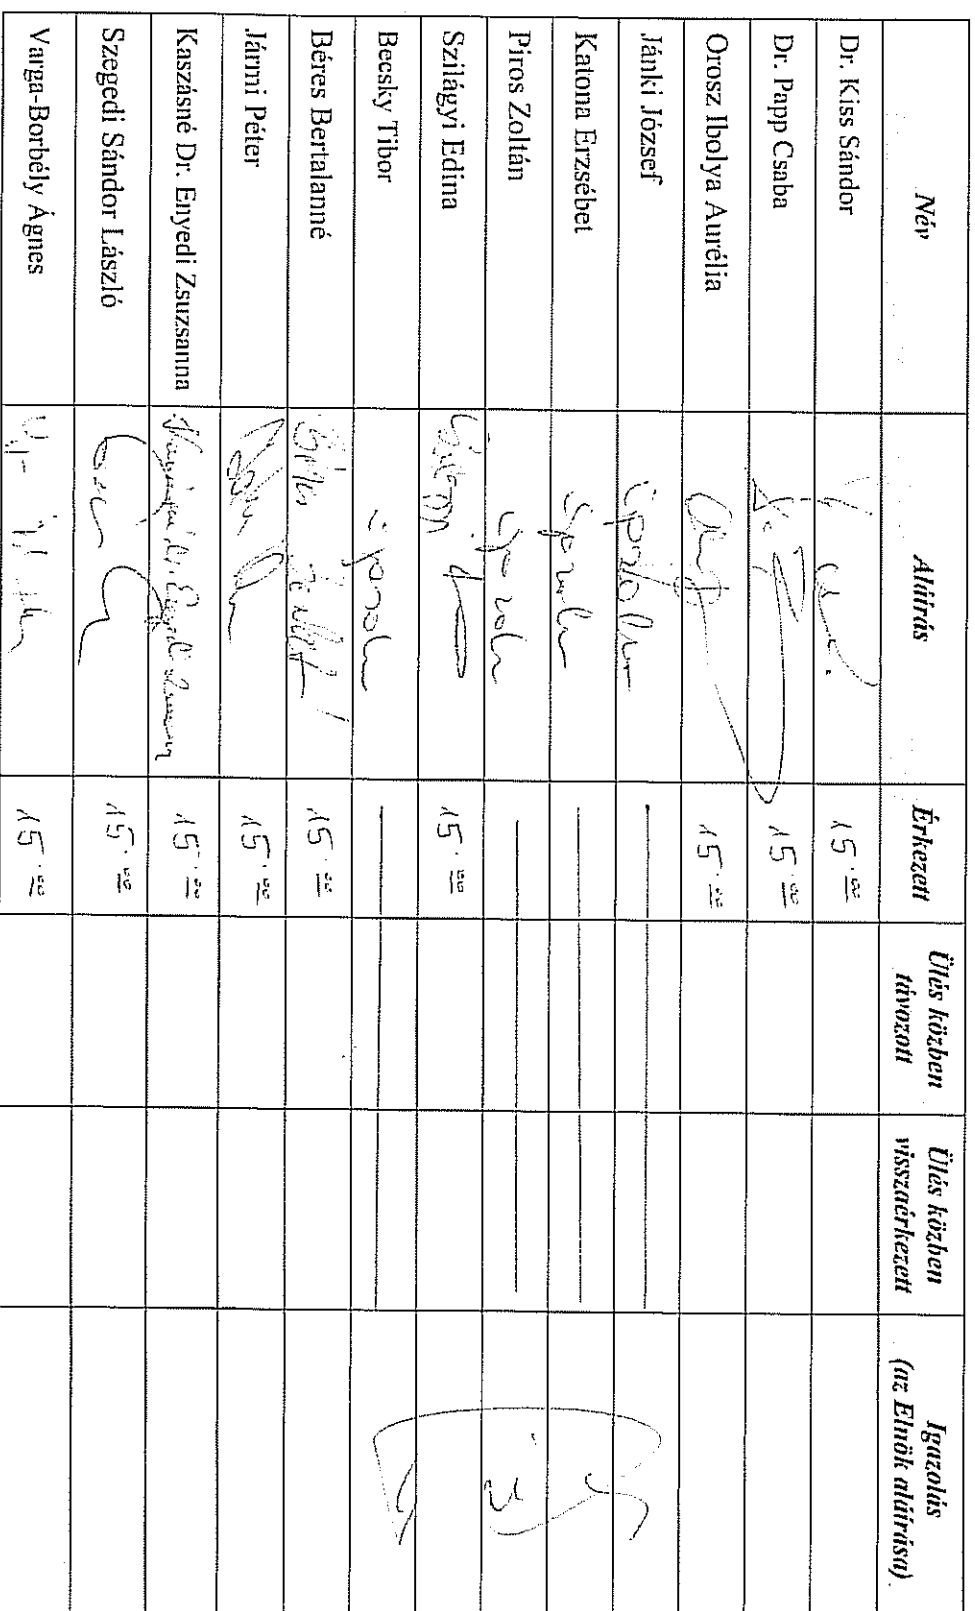 Név Aláírás Érkezett Ülés közben távozott Ülés közben visszaérkezett Igazolás (az Elnök aláírása)
Dr. Kiss Sándor 15.00
Dr. Papp Csaba 15.00
Orosz Ibolya Aurélia 15.00
Jánki József
Katona Erzsébet
Piros Zoltán
Szilágyi Edina 15.00
Becsky Tibor
Béres Bertalanné 15.00
Jármi Péter 15.00
Kaszásné Dr. Enyedi Zsuzsanna 15.00
Szegedi Sándor László 15.00
Varga-Borbély Ágnes 15.00